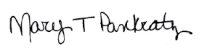 Mary T Pankratz